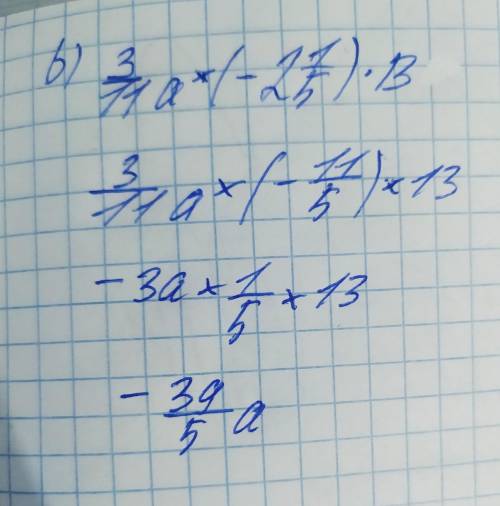 в) 3/11 a × (- 2 1/5) · 13
3/11 a × (- 11/5) × 13
- 3a × 1/5 × 13
- 39/5 a